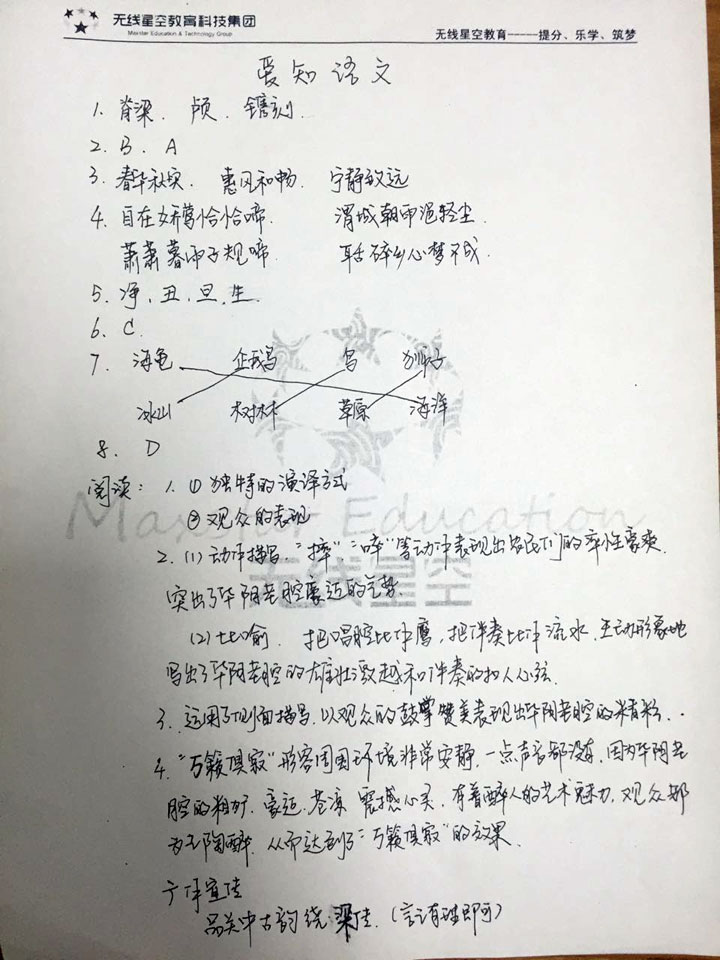 无线星空教育科技集团
Maxstar Education & Technology Group
无线星空教育-----提分、乐学、筑梦
爱知语文
1. 脊梁、颅、镌刻.
2. B、A
3. 春华秋实、惠风和畅、宁静致远
4. 自在娇莺恰恰啼. 渭城朝雨浥轻尘.
萧萧暮雨子规啼. 聒碎乡心梦不成.
5. 净、丑、旦、生.
6. C.
7. 海龟 企鹅 鸟 狮子
冰山 树林 草原 海洋
8. D
阅读: 1. ① 独特的演译方式
② 观众的表现
Maxstar Education
无线星空
2. (1) 动作描写. "摔"、"哗"等动作表现出农民们的率性豪爽.
突出了华阴老腔豪迈的气势.
(2) 比喻. 把唱腔比作鹰, 把伴奏比作流水, 生动形象地
写出了华阴老腔的雄壮激越和伴奏的扣人心弦.
3. 运用了侧面描写. 以观众的鼓掌赞美表现出华阴老腔的精彩..
4. "万籁俱寂"形容周围环境非常安静, 一点声音都没有, 因为华阴老
腔的粗犷、豪迈、苍凉、震撼心灵, 有着醉人的艺术魅力, 观众都
为之陶醉. 从而达到了"万籁俱寂"的效果.
广佳
品关中古韵 绕梁佳. (言之有理即可)